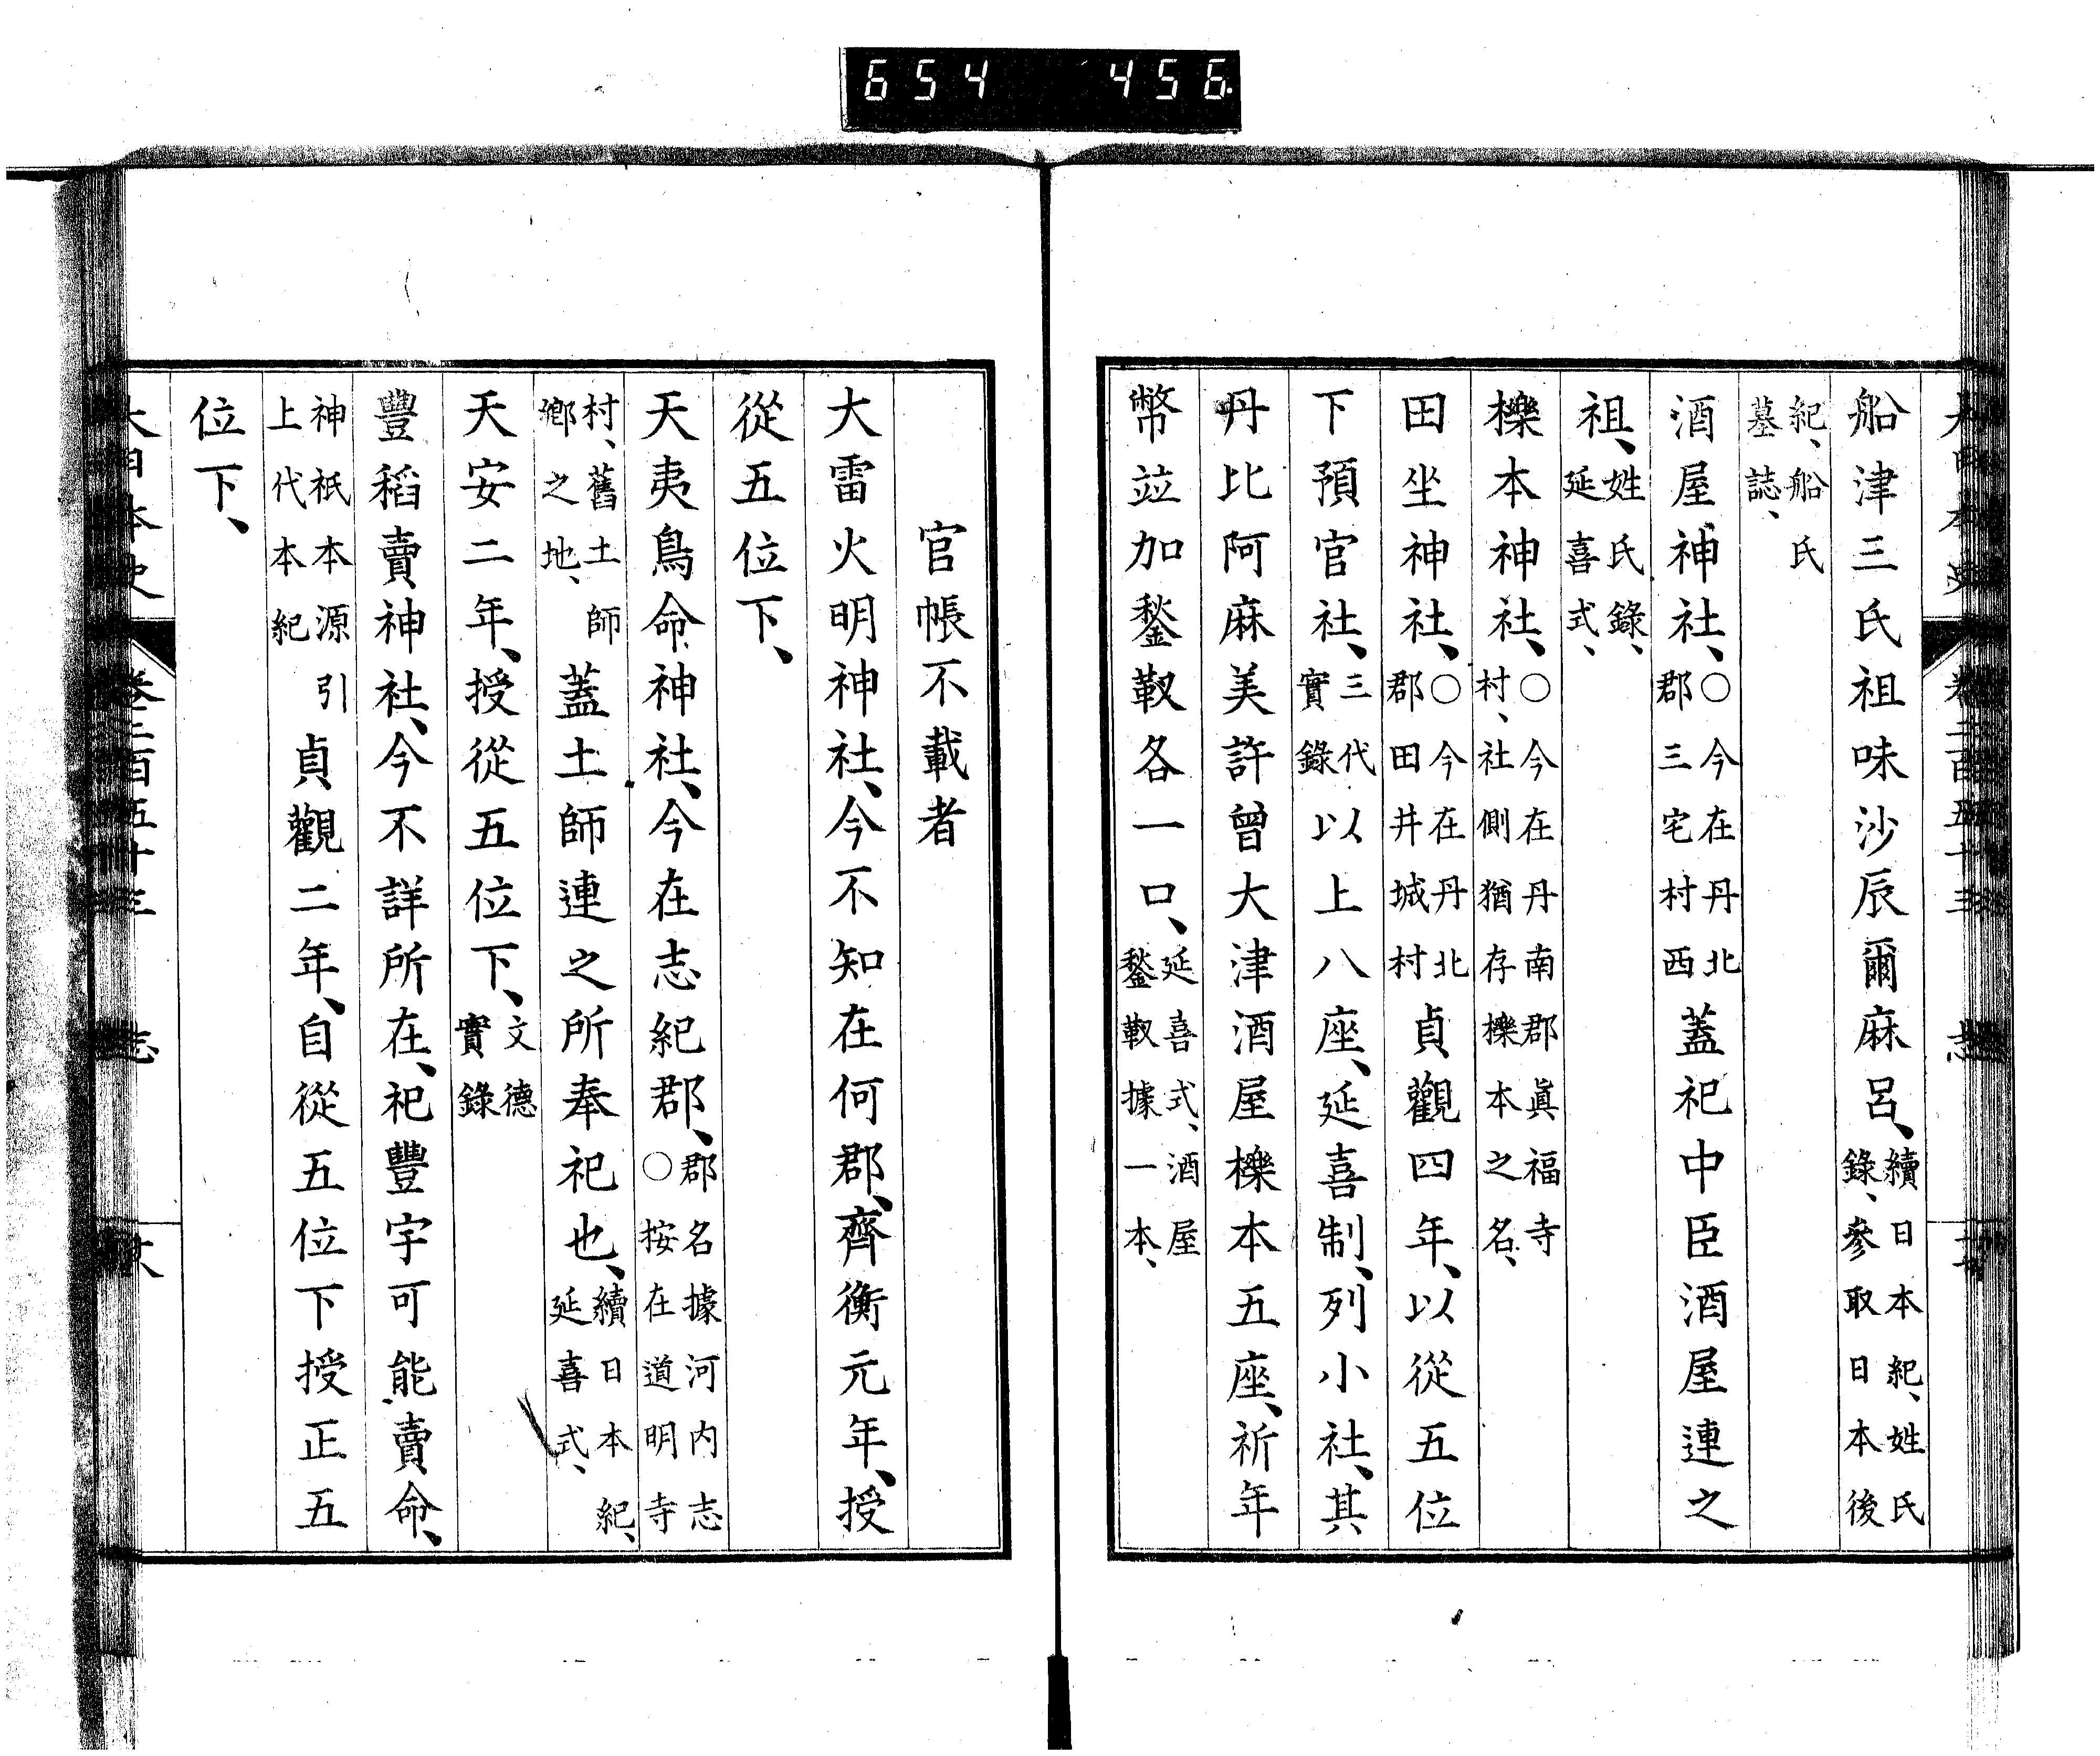 654 456
船津三氏祖味沙辰爾麻呂、續日本紀、姓氏錄、參取日本後
紀、船氏墓誌、
酒屋神社、○今在丹北郡三宅村西蓋祀中臣酒屋連之
祖、姓氏錄、延喜式、
櫟本神社、○今在丹南郡眞福寺村、社側猶存櫟本之名、
田坐神社、○今在丹北郡田井城村貞觀四年、以從五位
下預官社、三代實錄以上八座、延喜制、列小社、其
丹比阿麻美許曾大津酒屋櫟本五座、祈年
幣竝加鍫靫各一口、延喜式、酒屋鍫靫據一本、
官帳不載者
大雷火明神社、今不知在何郡、齊衡元年、授
從五位下、
天夷鳥命神社、今在志紀郡、郡名據河内志○按在道明寺
村、舊土師鄉之地、蓋土師連之所奉祀也、續日本紀、延喜式、
天安二年、授從五位下、文德實錄
豐稻賣神社、今不詳所在、祀豐宇可能賣命、
神祇本源引上代本紀貞觀二年、自從五位下授正五
位下、
大日本史 卷二百五十三 志